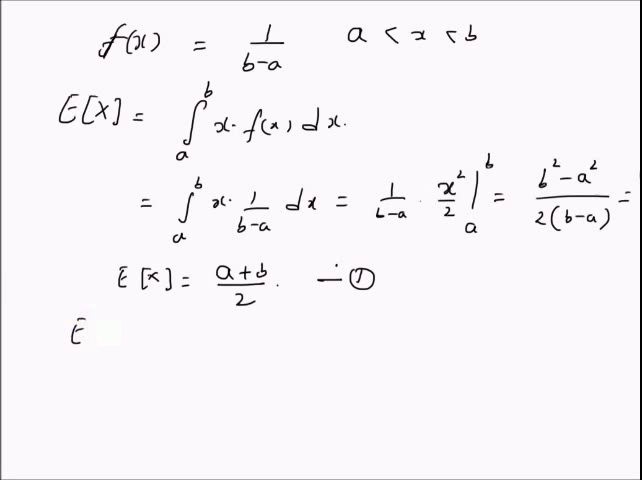 f(x) = 1/(b-a)   a < x < b
E[X] = ∫_a^b x· f(x) dx.
= ∫_a^b x· 1/(b-a) dx = 1/(b-a) · x²/2 |_a^b = (b²-a²)/(2(b-a)) =
E[x] = (a+b)/2. — ①
E